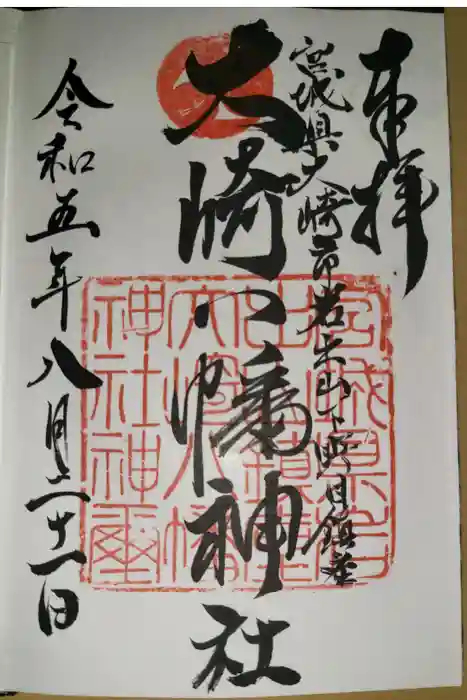 奉拝
宮城県大崎市岩出山下野目鎮座
大崎八幡神社
令和五年八月二十一日
宮城県岩
出山鎮座
大崎八幡
神社神璽